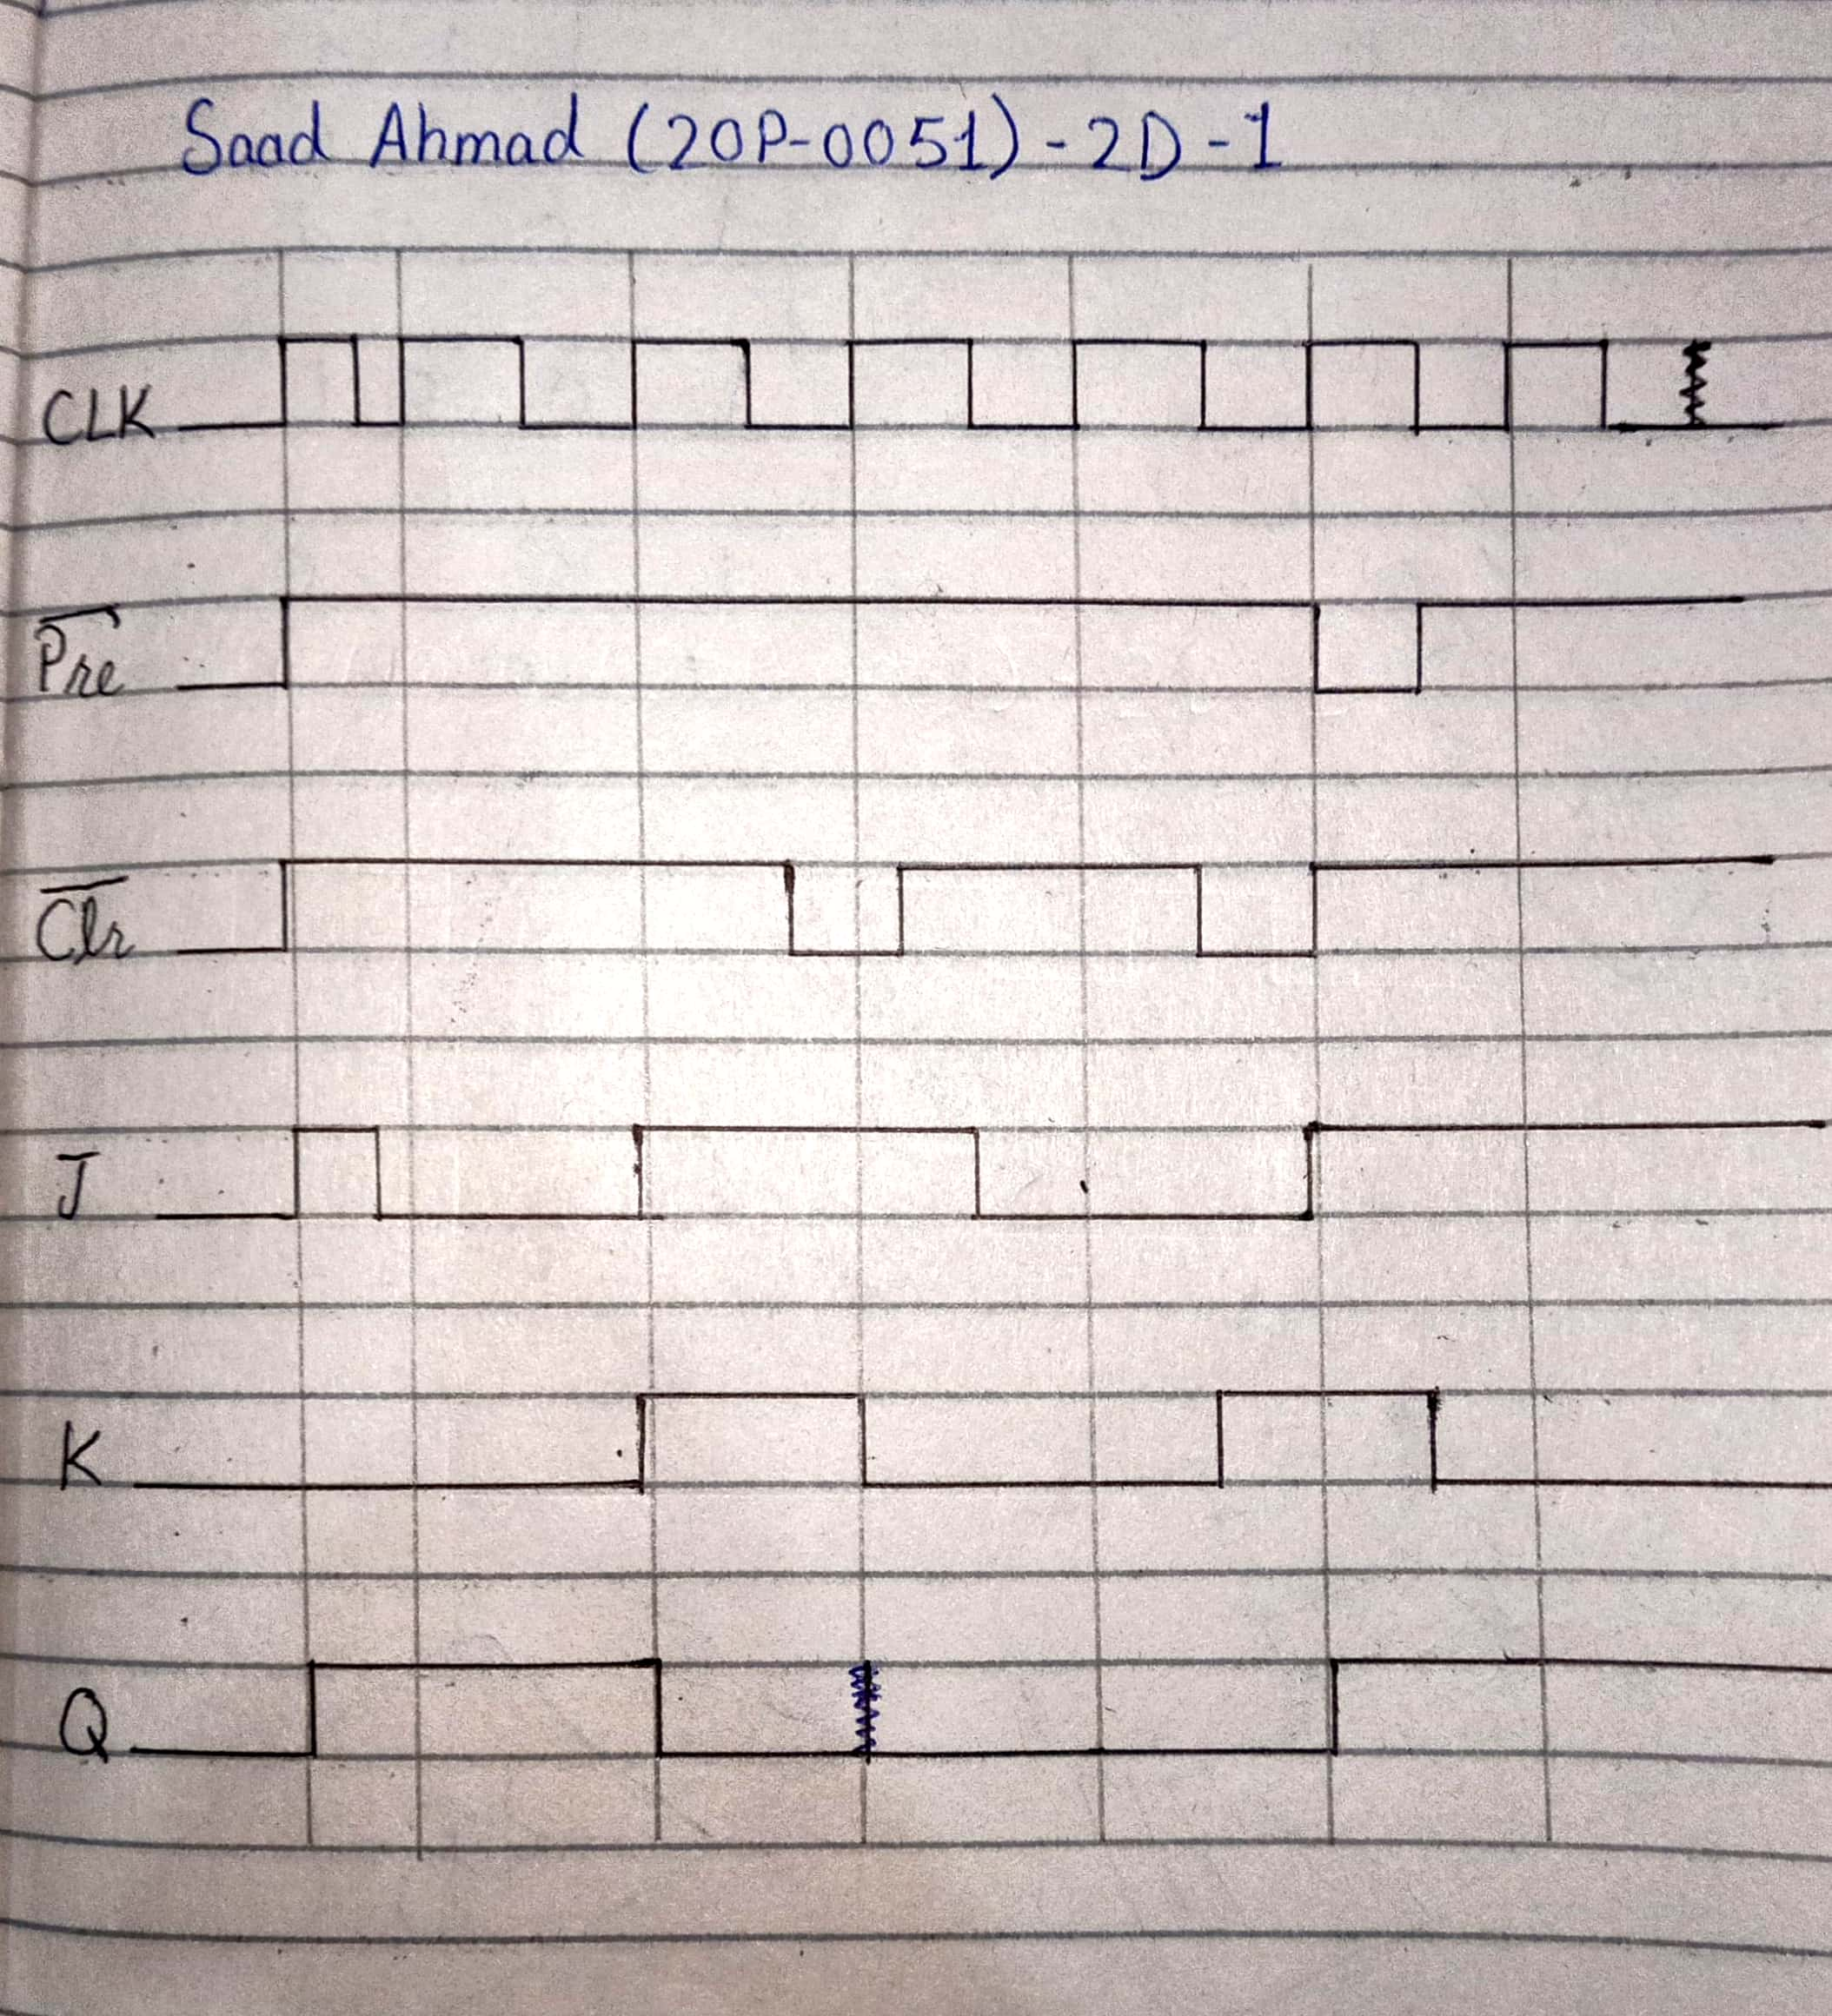 Saad Ahmad (20P-0051) - 2D - 1
CLK
P̅r̅e̅
C̅l̅r̅
J
K
Q